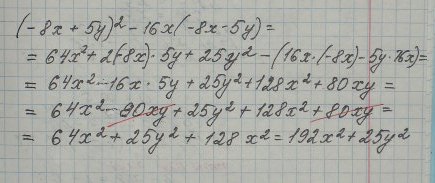 (-8x + 5y)² - 16x(-8x - 5y) =
= 64x² + 2(-8x)·5y + 25y² - (16x·(-8x) - 5y·16x) =
= 64x² - 16x·5y + 25y² + 128x² + 80xy =
= 64x² - 80xy + 25y² + 128x² + 80xy =
= 64x² + 25y² + 128x² = 192x² + 25y²